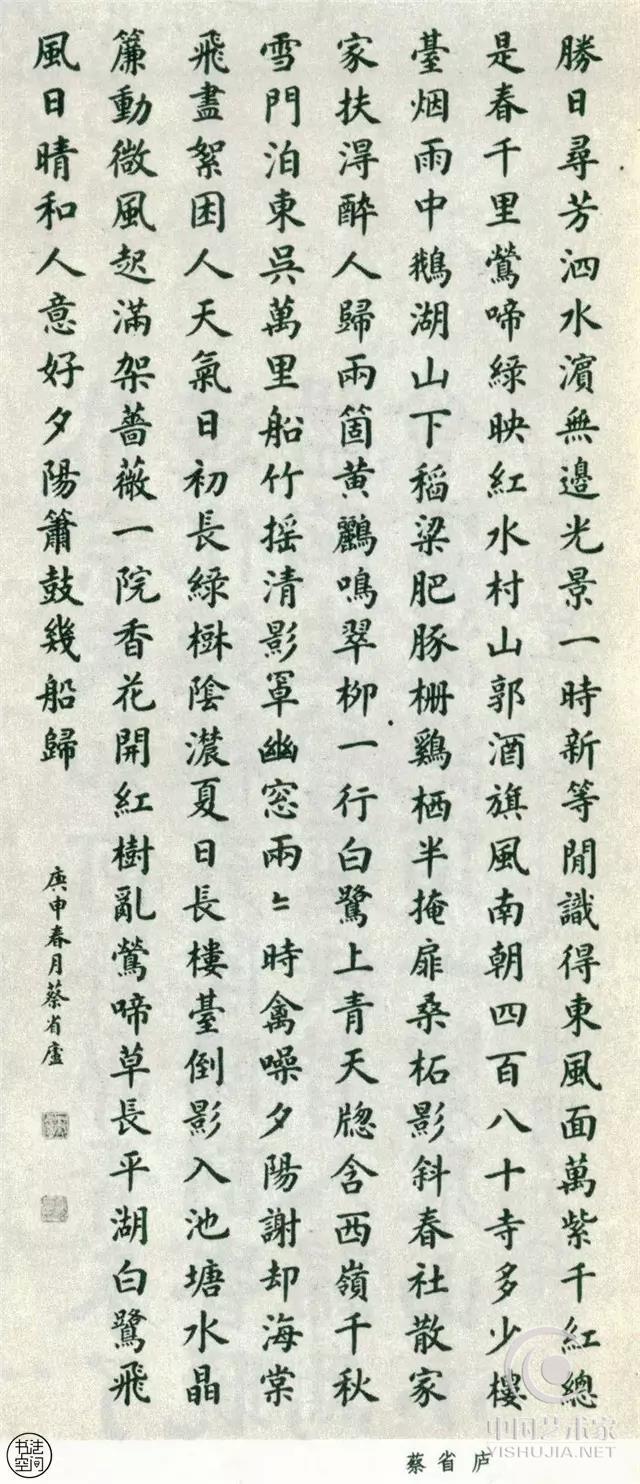 勝日尋芳泗水濱無邊光景一時新等閒識得東風面萬紫千紅總
是春千里鶯啼綠映紅水村山郭酒旗風南朝四百八十寺多少樓
臺烟雨中鵝湖山下稻粱肥豚柵鷄栖半掩扉桑柘影斜春社散家
家扶淂醉人歸兩箇黃鸝鳴翠柳一行白鷺上青天牕含西嶺千秋
雪門泊東吳萬里船竹摇清影罩幽窓兩〻時禽噪夕陽謝却海棠
飛盡絮困人天氣日初長綠樹陰濃夏日長樓臺倒影入池塘水晶
簾動微風起滿架薔薇一院香花開紅樹亂鶯啼草長平湖白鷺飛
風日晴和人意好夕陽簫鼓幾船歸
庚申春月蔡省廬
蔡省庐
书法空间
中国艺术家
YISHUJIA.NET